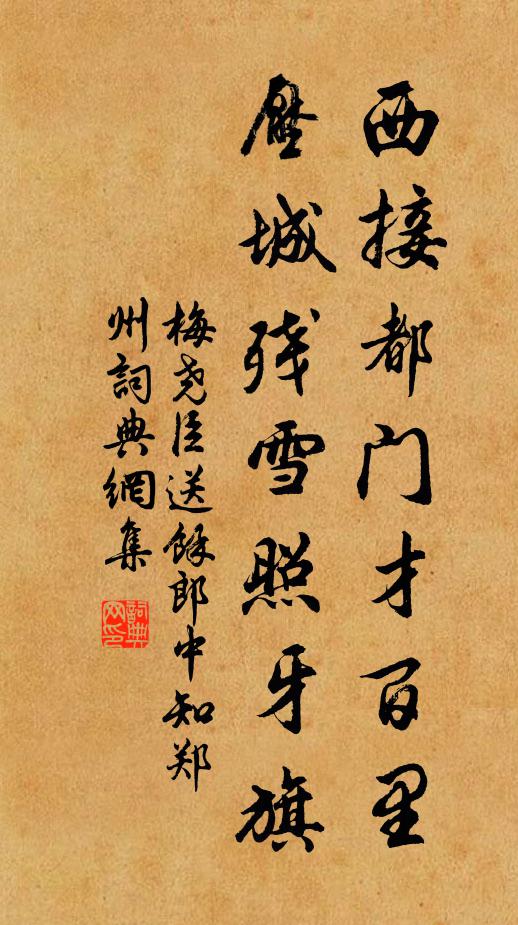 西接都门才百里
壓城残雪照牙旗
梅尧臣送餘郎中知郑
州詞典網集
詞典
网印